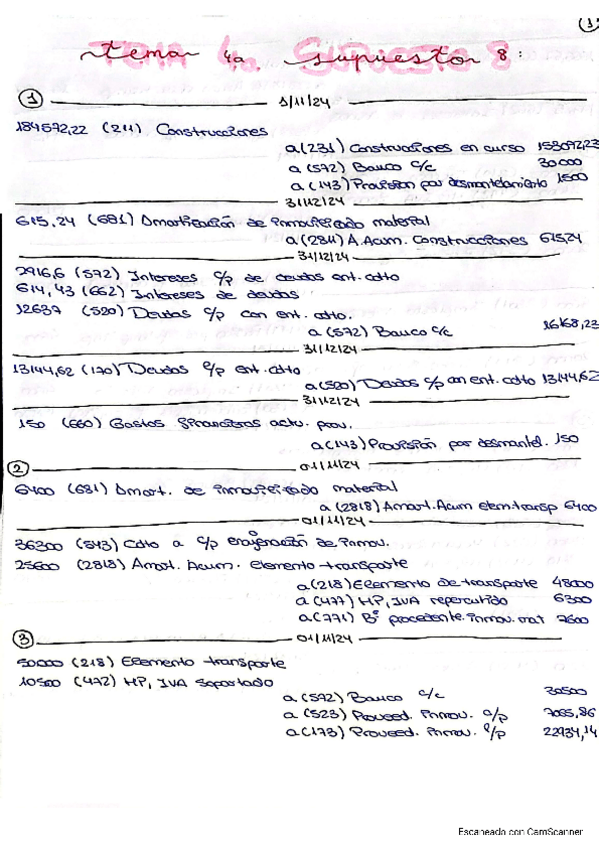 (1)
TEMA 4a. SUPUESTO 8:
1 1/11/24
184592,22 (211) Construcciones
a (231) Construcciones en curso 153092,23
a (572) Banco c/c 30000
a (143) Provisión por desmantelamiento 1500
31/12/24
615,24 (681) Amortización de inmovilizado material
a (2811) A. Acum. Construcciones 615,24
31/12/24
2916,6 (572) Intereses c/p de deudas ent. cdto
614,43 (662) Intereses de deudas
12637 (520) Deudas c/p con ent. cdto.
a (572) Banco c/c 16168,23
31/12/24
13144,62 (170) Deudas l/p ent. cdto
a (520) Deudas c/p con ent. cdto 13144,62
31/12/24
150 (660) Gastos financieros actu. prov.
a (143) Provisión por desmantel. 150
2 01/11/24
6400 (681) Amort. de inmovilizado material
a (2818) Amort. Acum elem. transp 6400
01/11/24
36300 (543) Cdto a c/p enajenación de inmov.
25600 (2818) Amort. Acum. elemento transporte
a (218) Elemento de transporte 48000
a (477) HP, IVA repercutido 6300
a (771) Bº procedente inmov. mat 7600
3 01/11/24
50000 (218) Elemento transporte
10500 (472) HP, IVA Soportado
a (572) Banco c/c 30500
a (523) Proveed. inmov. c/p 7065,86
a (173) Proveed. inmov. l/p 22934,14
Escaneado con CamScanner